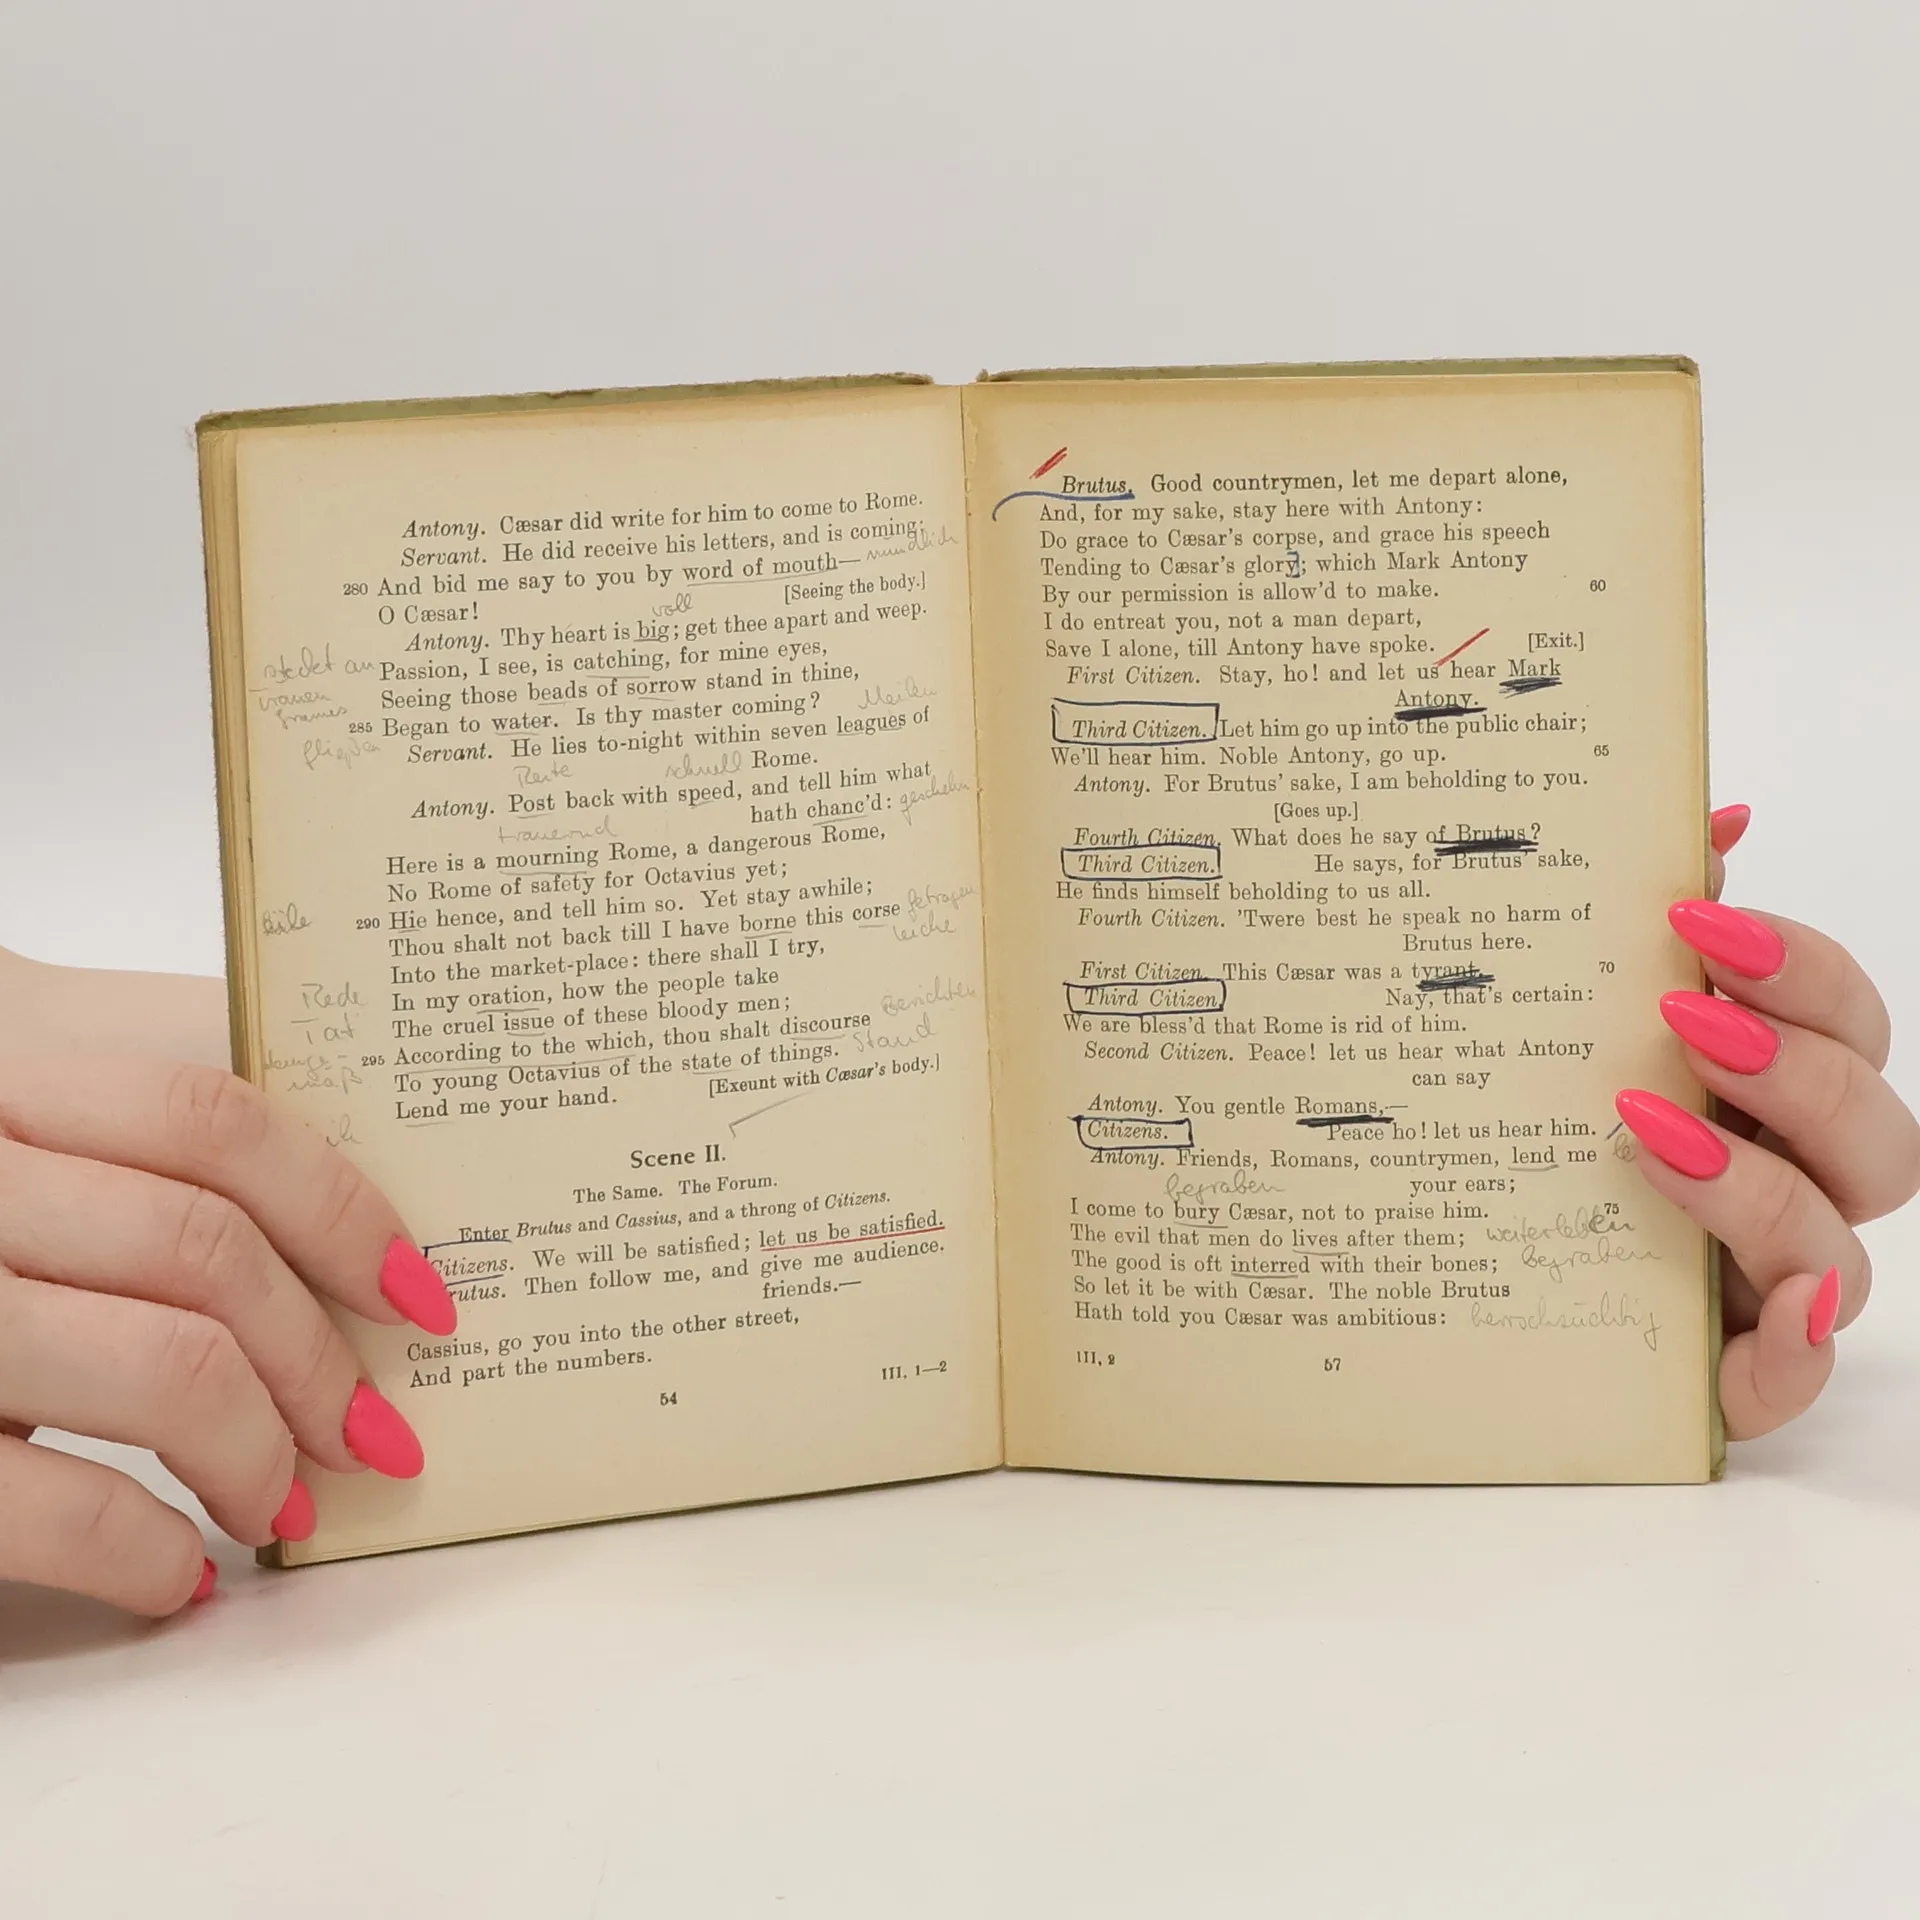 Antony. Cæsar did write for him to come to Rome.
Servant. He did receive his letters, and is coming;
280 And bid me say to you by word of mouth— mündlich
O Cæsar! [Seeing the body.]
voll
Antony. Thy heart is big; get thee apart and weep.
steckt an Passion, I see, is catching, for mine eyes,
Seeing those beads of sorrow stand in thine,
Meilen
285 Began to water. Is thy master coming?
Servant. He lies to-night within seven leagues of
Rome.
schnell
Antony. Post back with speed, and tell him what
hath chanc'd: geschehn
trauernd
Here is a mourning Rome, a dangerous Rome,
No Rome of safety for Octavius yet;
290 Hie hence, and tell him so. Yet stay awhile;
Thou shalt not back till I have borne this corse getragen
Leiche
Into the market-place: there shall I try,
Rede In my oration, how the people take
Tat The cruel issue of these bloody men;
295 According to the which, thou shalt discourse Berichten
To young Octavius of the state of things. Stand
Lend me your hand. [Exeunt with Cæsar's body.]
Scene II.
The Same. The Forum.
Enter Brutus and Cassius, and a throng of Citizens.
Citizens. We will be satisfied; let us be satisfied.
rutus. Then follow me, and give me audience.
friends.—
Cassius, go you into the other street,
And part the numbers.
III, 1—2
54
Brutus. Good countrymen, let me depart alone,
And, for my sake, stay here with Antony:
Do grace to Cæsar's corpse, and grace his speech
Tending to Cæsar's glory; which Mark Antony
By our permission is allow'd to make. 60
I do entreat you, not a man depart,
Save I alone, till Antony have spoke. [Exit.]
First Citizen. Stay, ho! and let us hear Mark
Antony.
Third Citizen. Let him go up into the public chair;
We'll hear him. Noble Antony, go up. 65
Antony. For Brutus' sake, I am beholding to you.
[Goes up.]
Fourth Citizen. What does he say of Brutus?
Third Citizen. He says, for Brutus' sake,
He finds himself beholding to us all.
Fourth Citizen. 'Twere best he speak no harm of
Brutus here.
First Citizen. This Cæsar was a tyrant. 70
Third Citizen. Nay, that's certain:
We are bless'd that Rome is rid of him.
Second Citizen. Peace! let us hear what Antony
can say
Antony. You gentle Romans,—
Citizens. Peace ho! let us hear him.
Antony. Friends, Romans, countrymen, lend me
your ears;
begraben
I come to bury Cæsar, not to praise him. 75
The evil that men do lives after them; weiterleben
The good is oft interred with their bones; begraben
So let it be with Cæsar. The noble Brutus
Hath told you Cæsar was ambitious: herrschsüchtig
III, 2
57